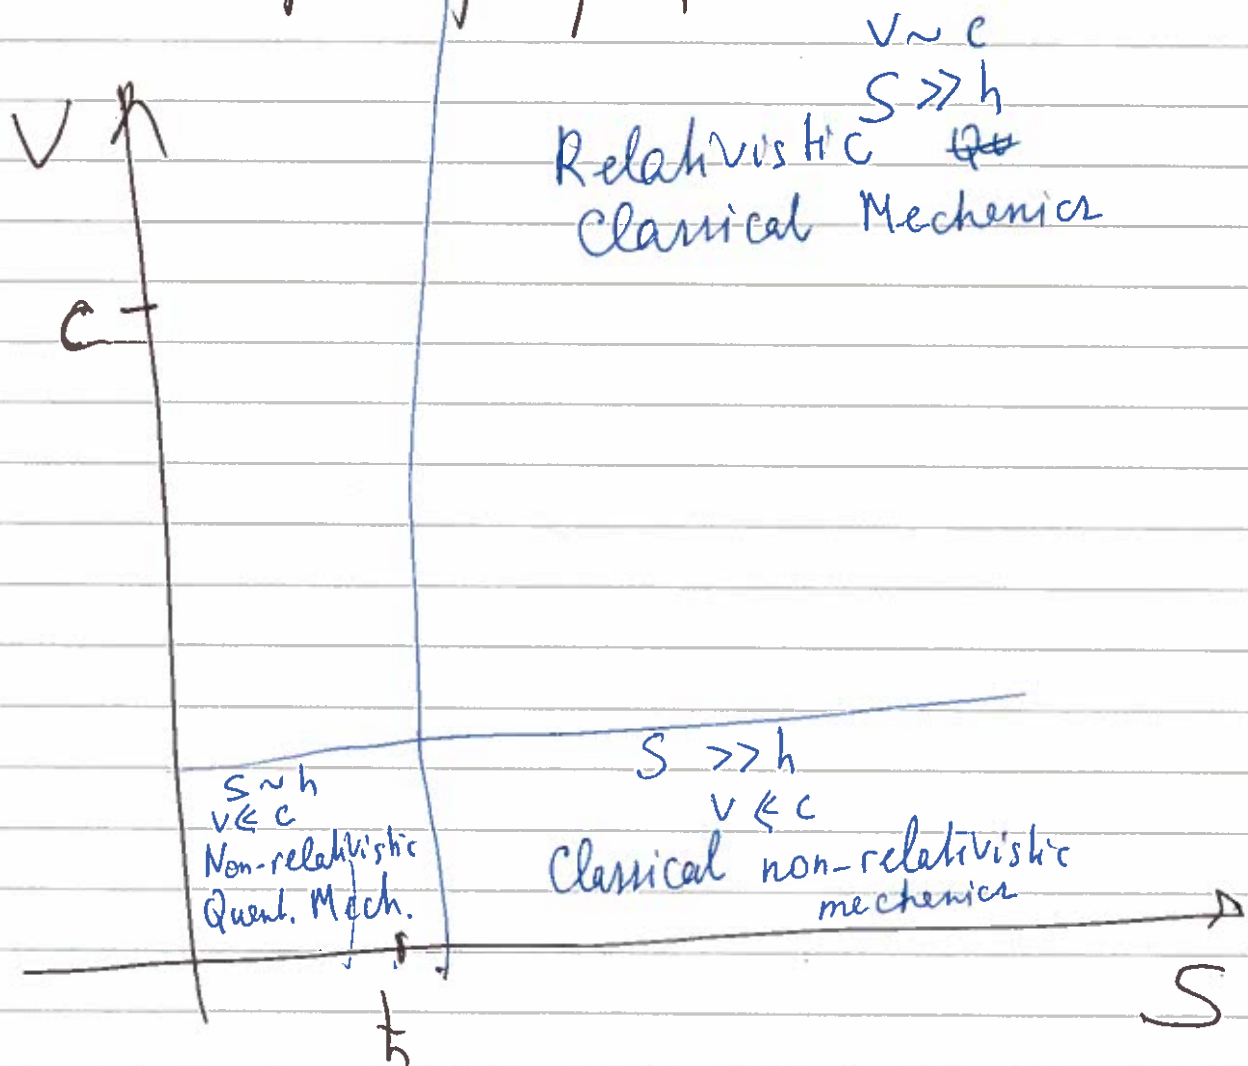 v ~ c
S >> h
V
Relativistic
Classical Mechenics
c
S ~ h
v << c
Non-relativistic
Quent. Mech.
S >> h
v << c
Classical non-relativistic
mechenics
S
ħ